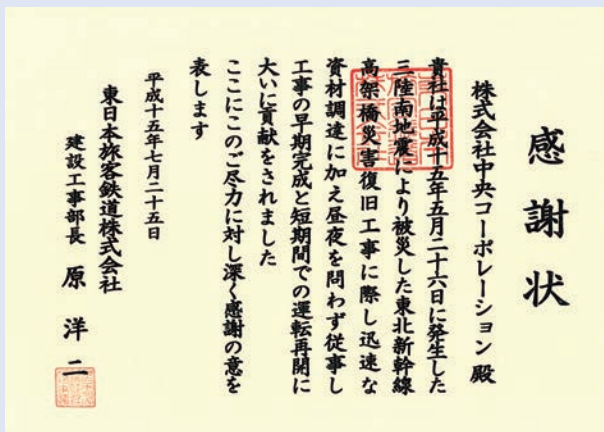 感謝状
株式会社中央コーポレーション 殿
貴社は平成十五年五月二十六日に発生した
三陸南地震により被災した東北新幹線
高架橋災害復旧工事に際し迅速な
資材調達に加え昼夜を問わず従事し
工事の早期完成と短期間での運転再開に
大いに貢献をされました
ここにこのご尽力に対し深く感謝の意を
表します
平成十五年七月二十五日
東日本旅客鉄道株式会社
建設工事部長 原 洋二